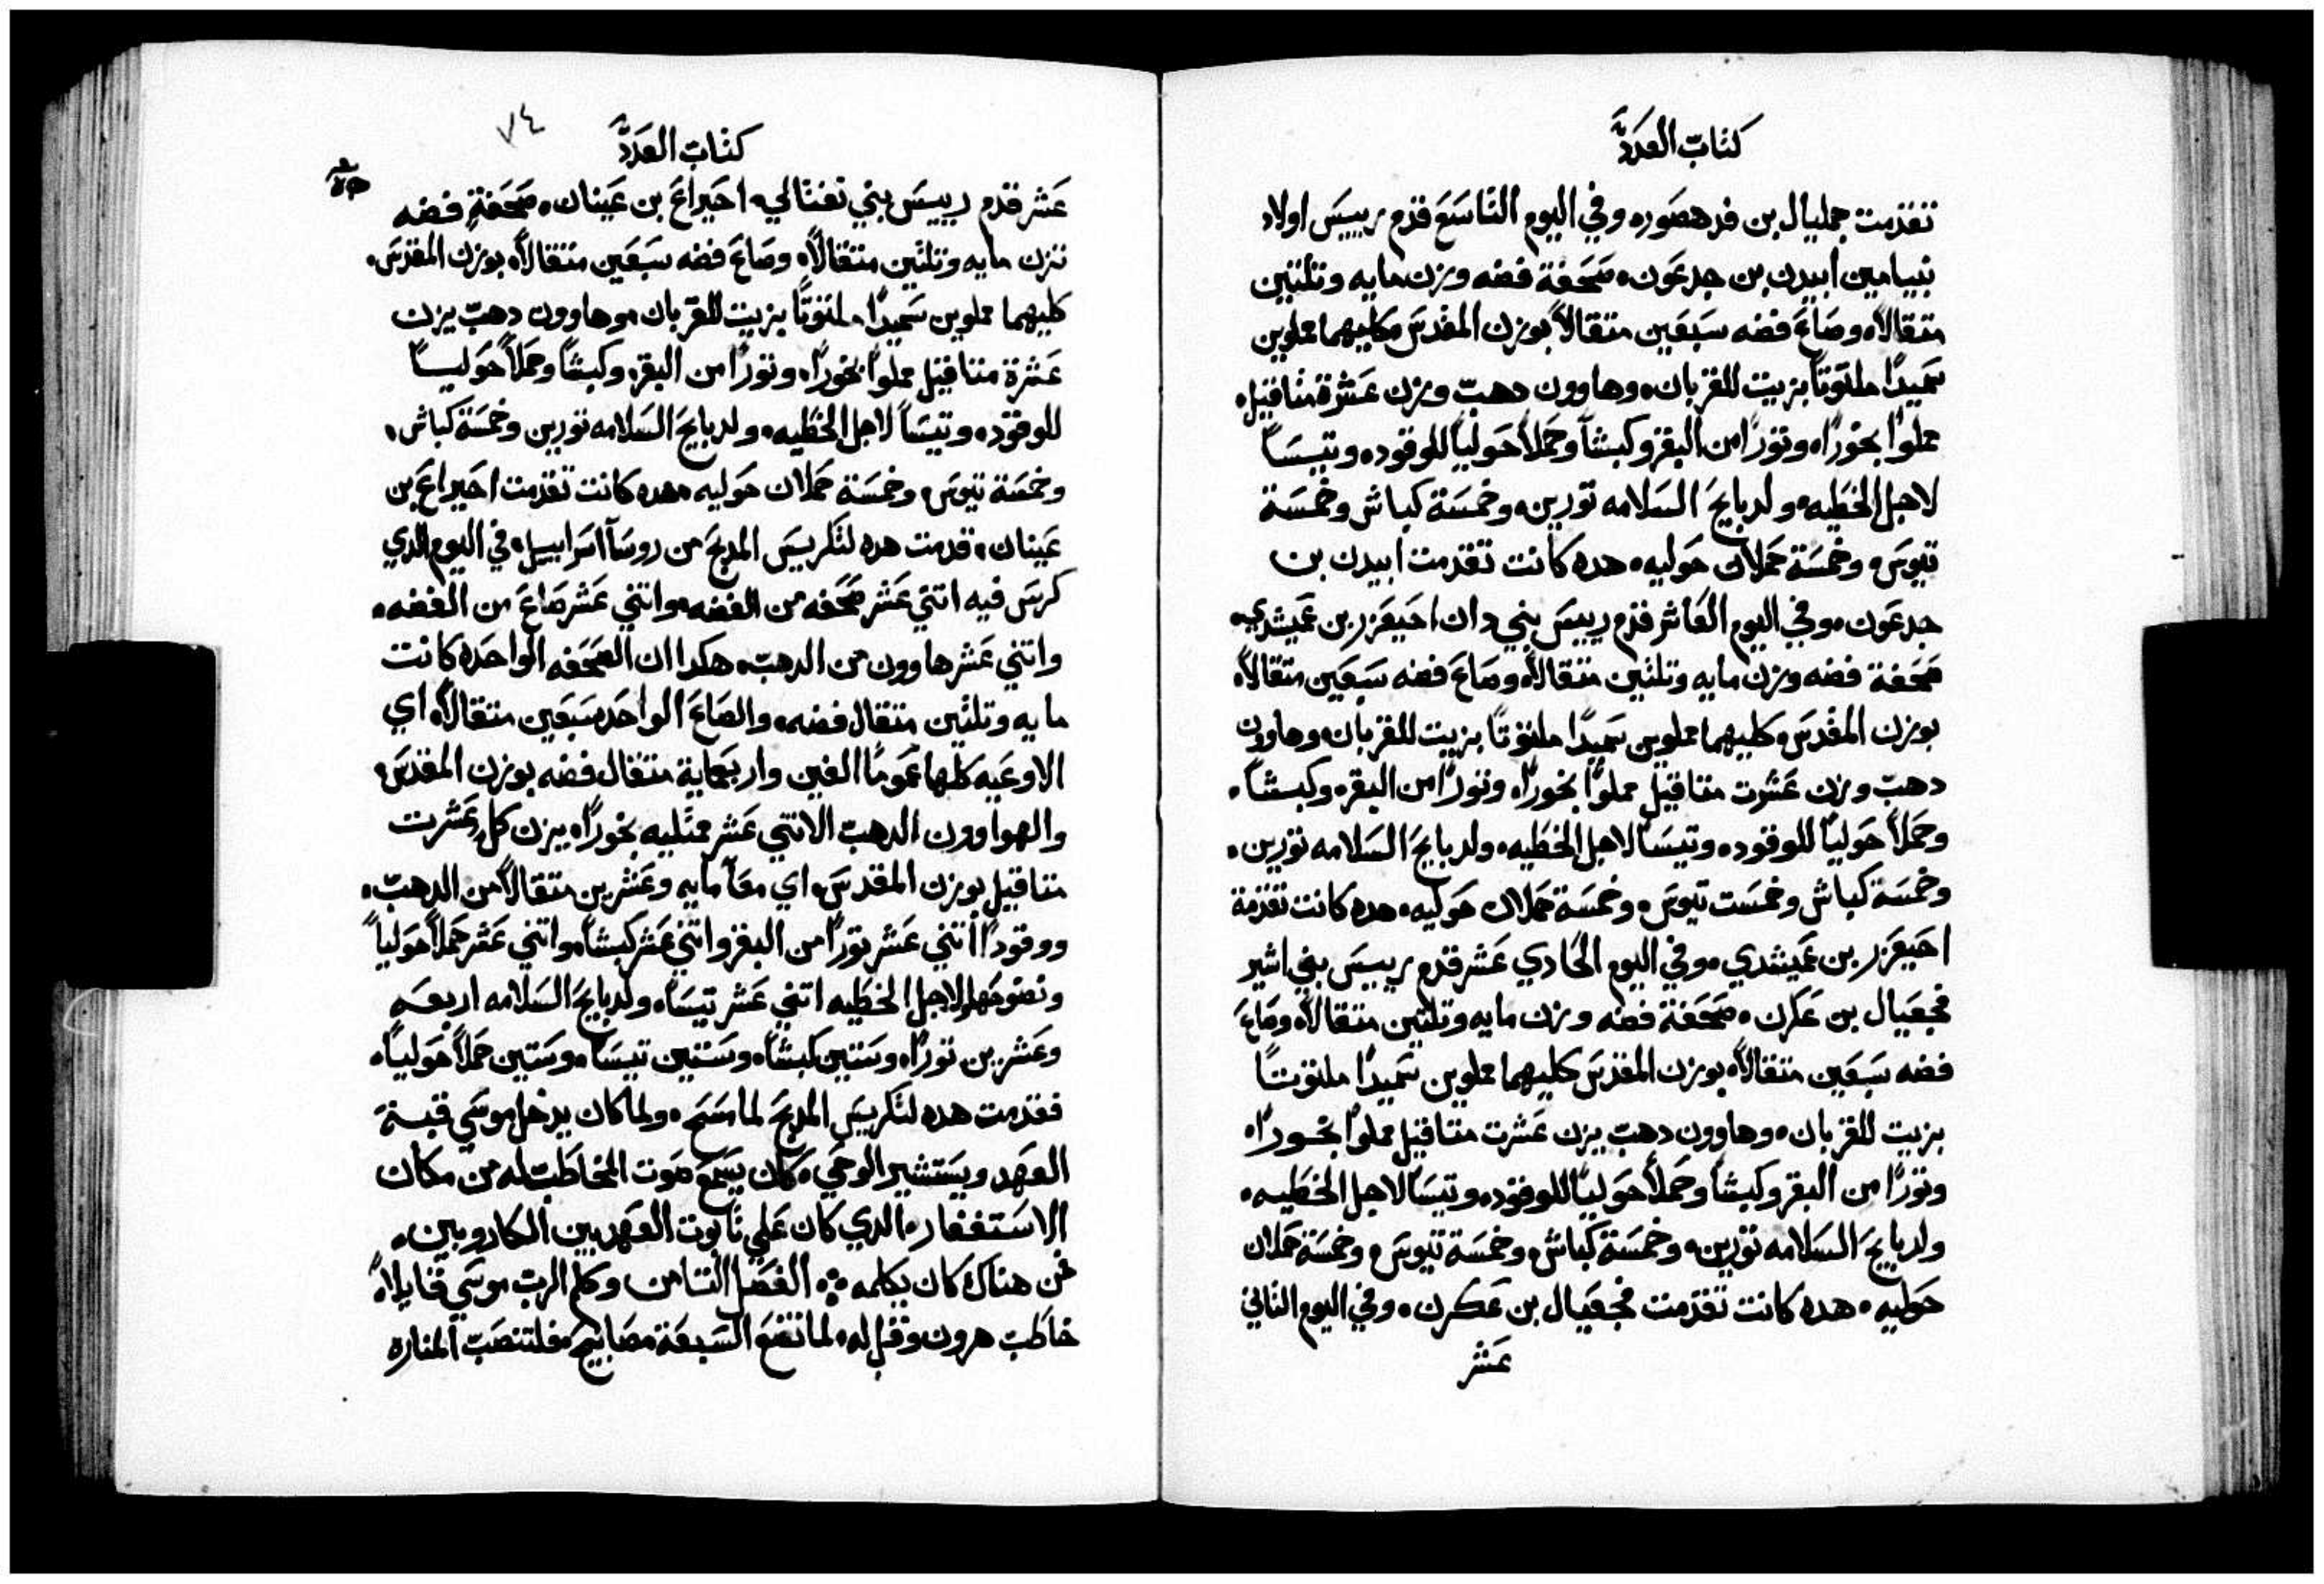 كتاب العدد
تقدمت جمليال بن فدهصور ٠ وفي اليوم التاسَع قدم رييسَ اولاد
بنيامين ابيدن بن جدعَون ٠ صَحَفة فضه وزن مايه وتلتين
متقالاً ٠ وصَاعَ فضه سَبعَين متقالاً بوزن المقدسَ ٠ كليهما مملوين
سَميدًا ملتوتاً بزيت للقربان ٠ وهاوون دهبّ وزن عَشرة متاقيل ٠
مملوًا بخورًا ٠ وتورًا من البقر وكبشاً وحَملاً حَولياً للوقود ٠ وتيسَاً
لاجل الخطيه ٠ ولدبايحَ السَلامه تورين ٠ وخمسَة كباش وخمسَة
تيوسَ ٠ وخمسَة حَملان حَوليه ٠ هده كانت تقدمت ابيدن بن
جدعَون ٠ وفي اليوم العَاشر قدم رييسَ بني دان احَيعَزر بن عَميشدي ٠
صَحَفة فضه وزن مايه وتلتين متقالاً ٠ وصَاعَ فضه سَبعَين متقالاً ٠
بوزن المقدسَ ٠ كليهما مملوين سَميدًا ملتوتًا بزيت للقربان ٠ وهاوون
دهبّ وزن عَشرت متاقيل مملوًا بخورًا ٠ وتورًا من البقر ٠ وكبشاً ٠
وحَملاً حَولياً للوقود ٠ وتيسَاً لاجل الخطيه ٠ ولدبايحَ السَلامه تورين ٠
وخمسَة كباش وخمسَت تيوسَ ٠ وخمسَة حَملان حَوليه ٠ هده كانت تقدمة
احَيعَزر بن عَميشدي ٠ وفي اليوم الحَادي عَشر قدم رييسَ بني اشير
فجعَيال بن عَكرن ٠ صَحَفة فضه وزن مايه وتلتين متقالاً ٠ وصَاعَ
فضه سَبعَين متقالاً ٠ بوزن المقدسَ كليهما مملوين سَميدًا ملتوتاً
بزيت للقربان ٠ وهاوون دهبّ يزن عَشرت متاقيل مملوًا بخورًا ٠
وتورًا من البقر وكبشاً وحَملاً حَولياً للوقود ٠ وتيسَاً لاجل الخطيه ٠
ولدبايحَ السَلامه تورين ٠ وخمسَة كباش ٠ وخمسَة تيوسَ ٠ وخمسَة حَملان
حَوليه ٠ هده كانت تقدمت فجعَيال بن عَكرن ٠ وفي اليوم التاني
عَشر
٧٤
كتاب العدد
عَشر قدم رييسَ بني نفتالي ٠ احَيراعَ بن عَينان ٠ صَحَفةٍ فضه
تزن مايه وتلتين متقالاً ٠ وصَاعَ فضه سَبعَين متقالاً ٠ بوزن المقدسَ ٠
كليهما مملوين سَميدًا ملتوتًا بزيت للقربان ٠ وهاوون دهبّ يزن
عَشرة متاقيل مملوًا بخورًا ٠ وتورًا من البقر ٠ وكبشاً وحَملاً حَولياً
للوقود ٠ وتيسَاً لاجل الخطيه ٠ ولدبايحَ السَلامه تورين وخمسَة كباش ٠
وخمسَة تيوسَ ٠ وخمسَة حَملان حَوليه ٠ هده كانت تقدمت احَيراعَ بن
عَينان ٠ قدمت هده لتكريسَ المدبحَ من روسَآ اسَراييل ٠ في اليوم الدي
كرسَ فيه اتني عَشر صَحَفه من الفضه ٠ واتني عَشر صَاعَ من الفضه ٠
واتني عَشر هاوون من الدهبّ ٠ هكدا ان الصَحَفه الواحَده كانت
مايه وتلتين متقال فضه ٠ والصَاعَ الواحَد سَبعَين متقالاً ٠ اي
الاوعَيه كلها عَموماً الفين واربعماية متقال فضه بوزن المقدسَ ٠
والهواوون الدهبّ الاتني عَشر ممتليه بخورًا ٠ يزن كل عَشرت
متاقيل بوزن المقدسَ ٠ اي معَاً مايه وعَشرين متقالاً من الدهبّ ٠
ووقودًا اتني عَشر تورًا من البقر واتني عَشر كبشاً ٠ واتني عَشر حَملاً حَولياً
ونضوحَها ٠ لاجل الخطيه اتني عَشر تيسَاً ٠ ولدبايحَ السَلامه اربعَه
وعَشرين تورًا ٠ وسَتين كبشاً ٠ وسَتين تيسَاً ٠ وسَتين حَملاً حَولياً ٠
فقدمت هده لتكريسَ المدبحَ لما مسَحَ ٠ ولما كان يدخل موسَي قبةَ
العَهد ويسَتشير الوحَي ٠ كان يسَمعَ صَوت المخاطبّ له من مكان
الاسَتغفار ٠ الدي كان عَلي تابوت العَهد بين الكاروبين ٠
من هناك كان يكلمه ܀ الفصَل التامن وكلم الربّ موسَي قايلاً ٠
خاطبّ هرون وقل له ٠ لما تضعَ السَبعَة مصَابيحَ ٠ فلتنصَبّ المناره